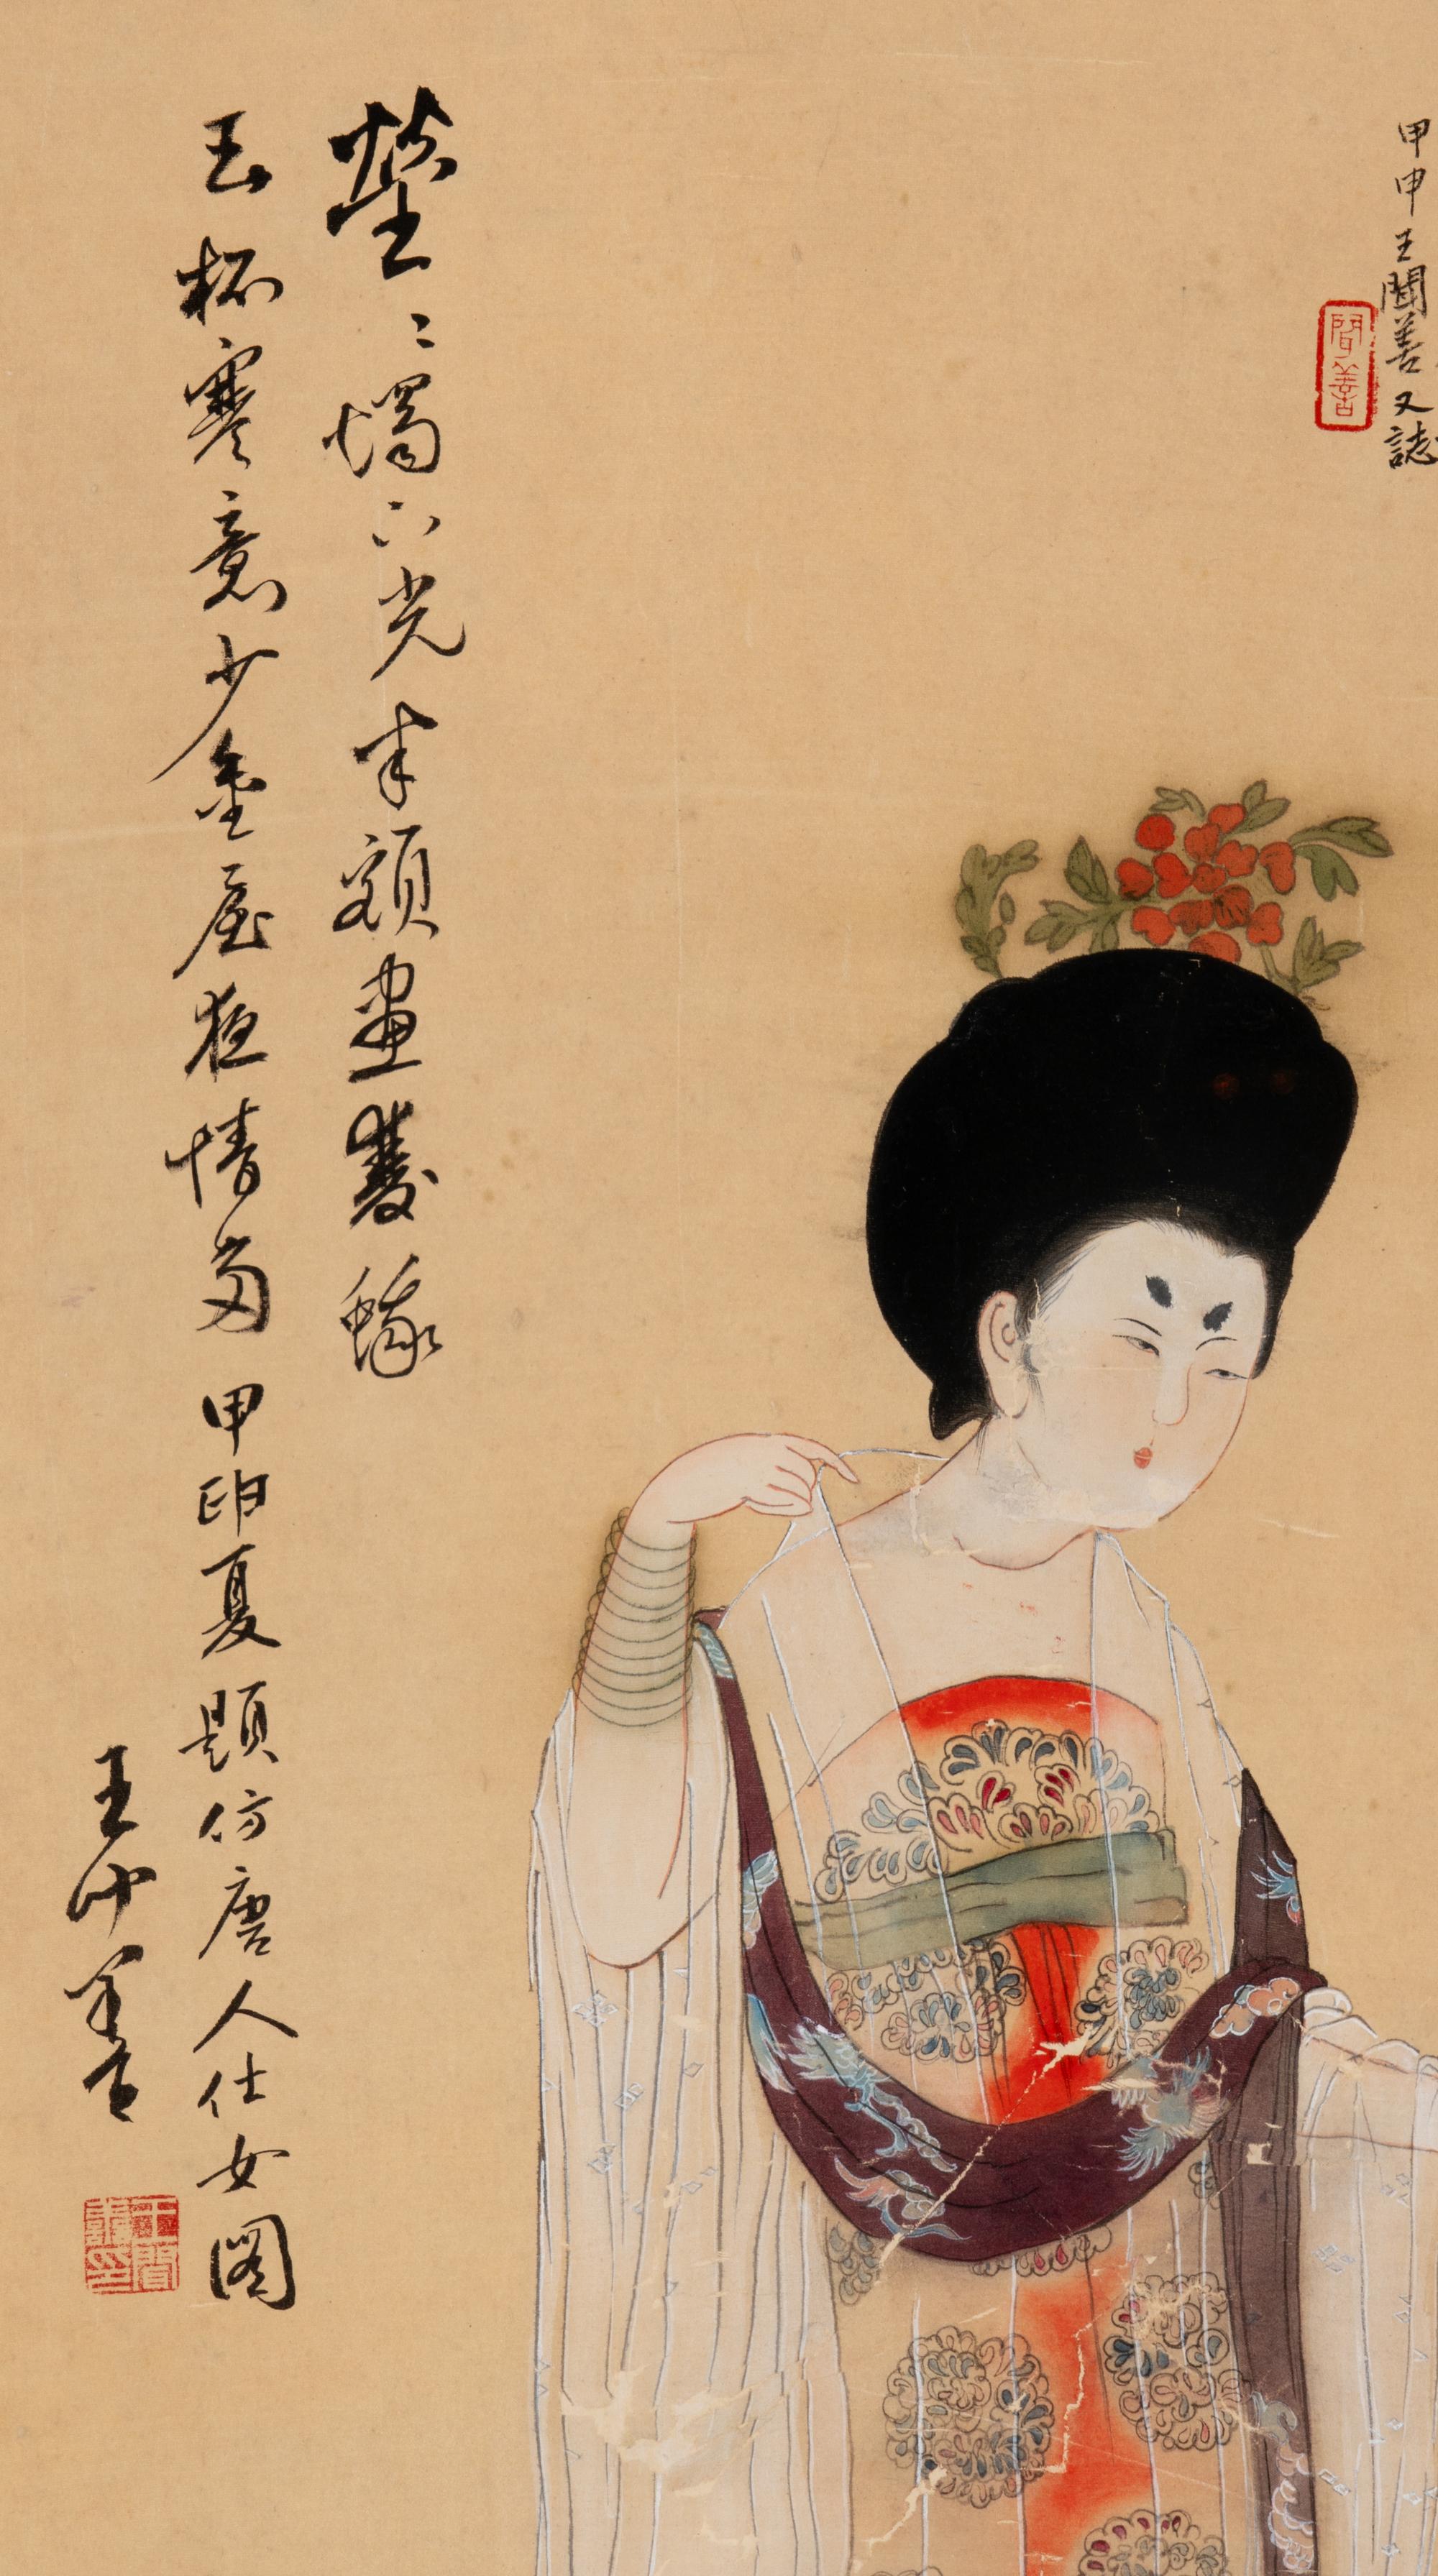 甲申王聞善又誌
聞善
瑩〻燭下光半額畫雙蛾
玉杯寒意少金屋夜情多甲申夏題仿唐人仕女圖
王聞善
王聞